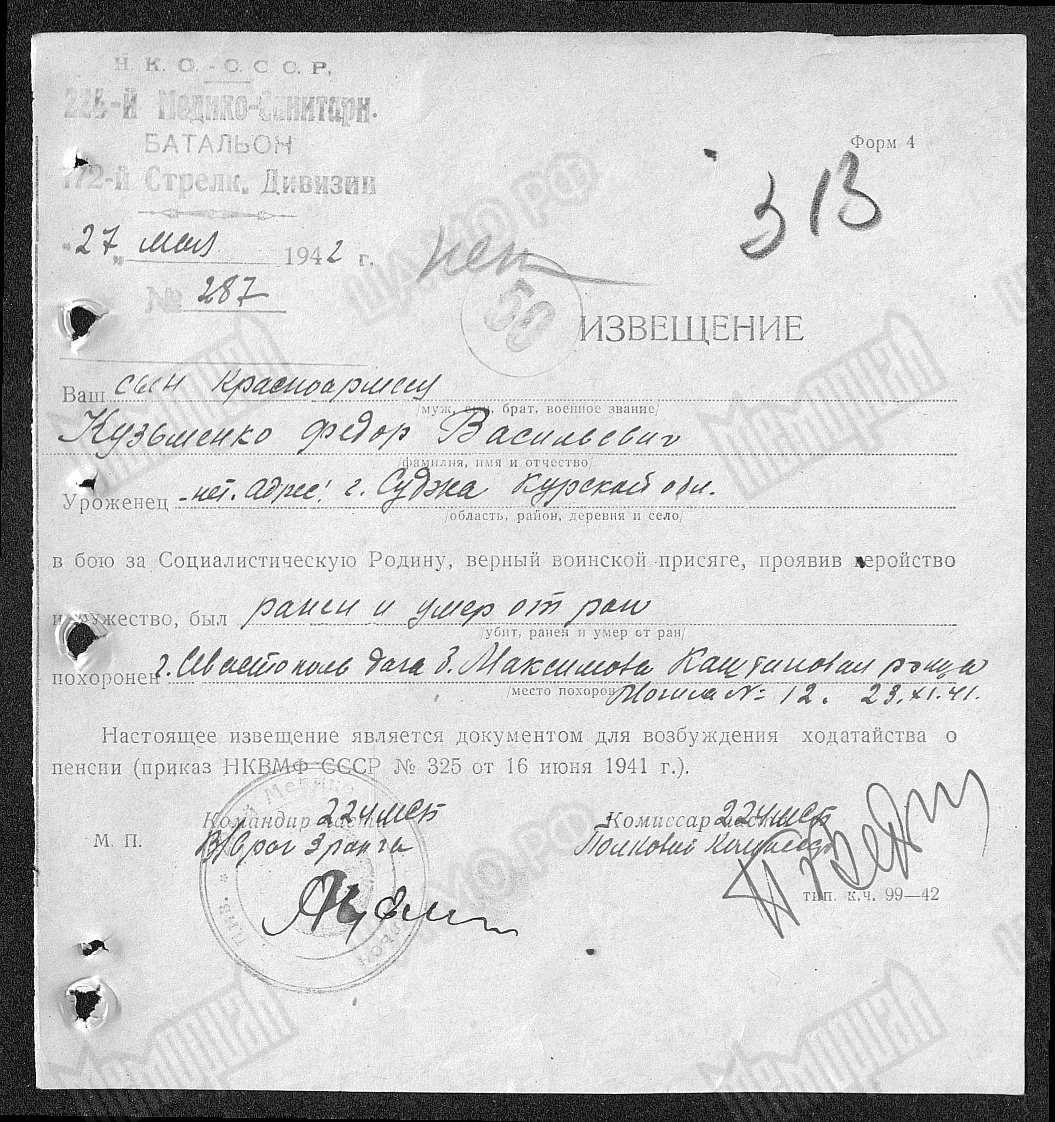 Н. К. О. - С. С. С. Р.
Медико-Санитарн.
БАТАЛЬОН
172-й Стрелк. Дивизии
Форм 4
313
"27" мая 1942 г.
№ 287
50
ИЗВЕЩЕНИЕ
Ваш сын красноармеец
/муж, сын, брат, военное звание/
Кузьменко Федор Васильевич
/фамилия, имя и отчество/
Уроженец г. Суджа Курской обл.
/область, район, деревня и село/
в бою за Социалистическую Родину, верный воинской присяге, проявив геройство
и мужество, был ранен и умер от ран
/убит, ранен и умер от ран/
похоронен г. Севастополь дача Максимова Каштановая роща
/место похорон
Могила № 12. 23.XI.41.
Настоящее извещение является документом для возбуждения ходатайства о
пенсии (приказ НКВМФ СССР № 325 от 16 июня 1941 г.).
Командир 224 мсб
Комиссар 224 мсб
М. П.
В/врач 3 ранга
тип. к.ч. 99—42
Мемориал
ЦАМО РФ